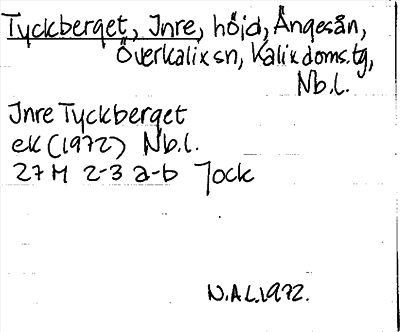 Tyckberget, Inre, höjd, Ängesån,
Överkalix sn, Kalix doms.tg,
Nb.l.
Inre Tyckberget
ek (1972) Nb.l.
27 M 2-3 a-b Jock
N.A.L. 1972.